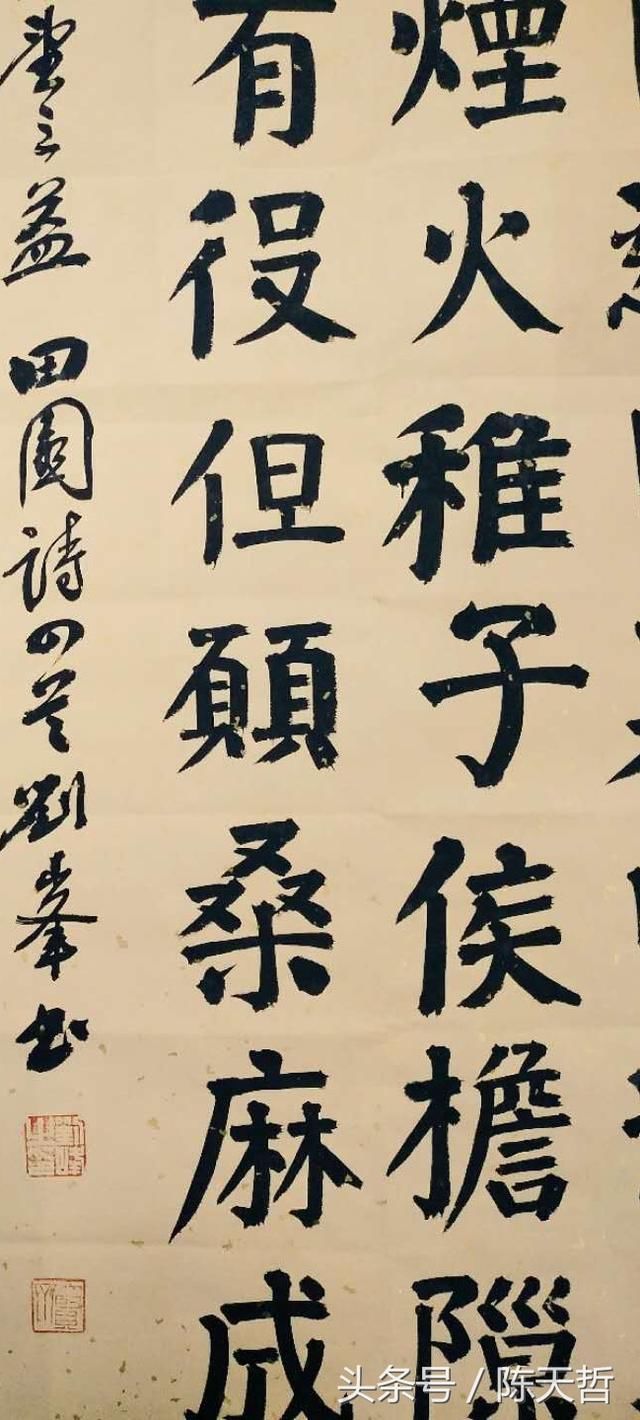 煙火稚子侯檐隙
有役但願桑麻成
望三益 田園詩四首 劉峯書
头条号 / 陈天哲